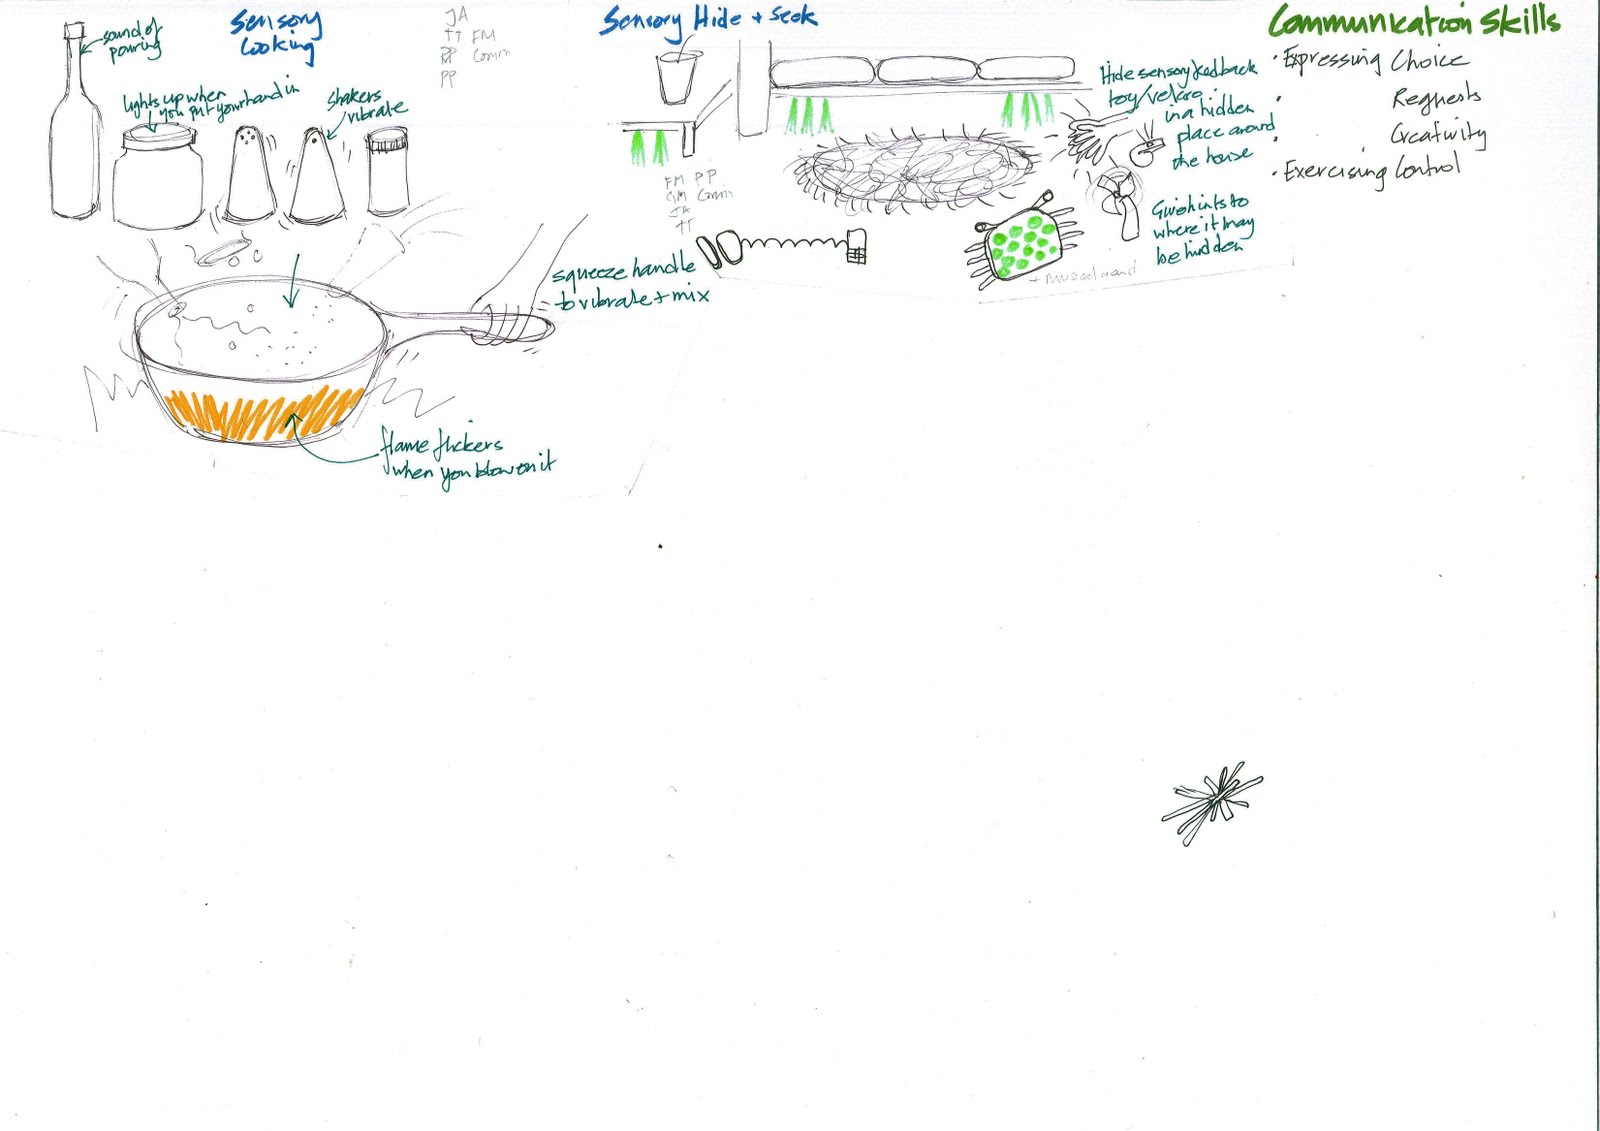 Sensory
Cooking
sound of
pouring
lights up when
you put your hand in
shakers
vibrate
JA
TT FM
PP Comm
PP
squeeze handle
to vibrate + mix
flame flickers
when you blow on it
Sensory Hide + Seek
FM PP
GM Comm
JA
TT
Hide sensory feedback
toy/velcro
in a hidden
place around
the house
Give hints to
where it may
be hidden
+ musical wand
Communication Skills
· Expressing Choice
· Requests
· Creativity
· Exercising Control